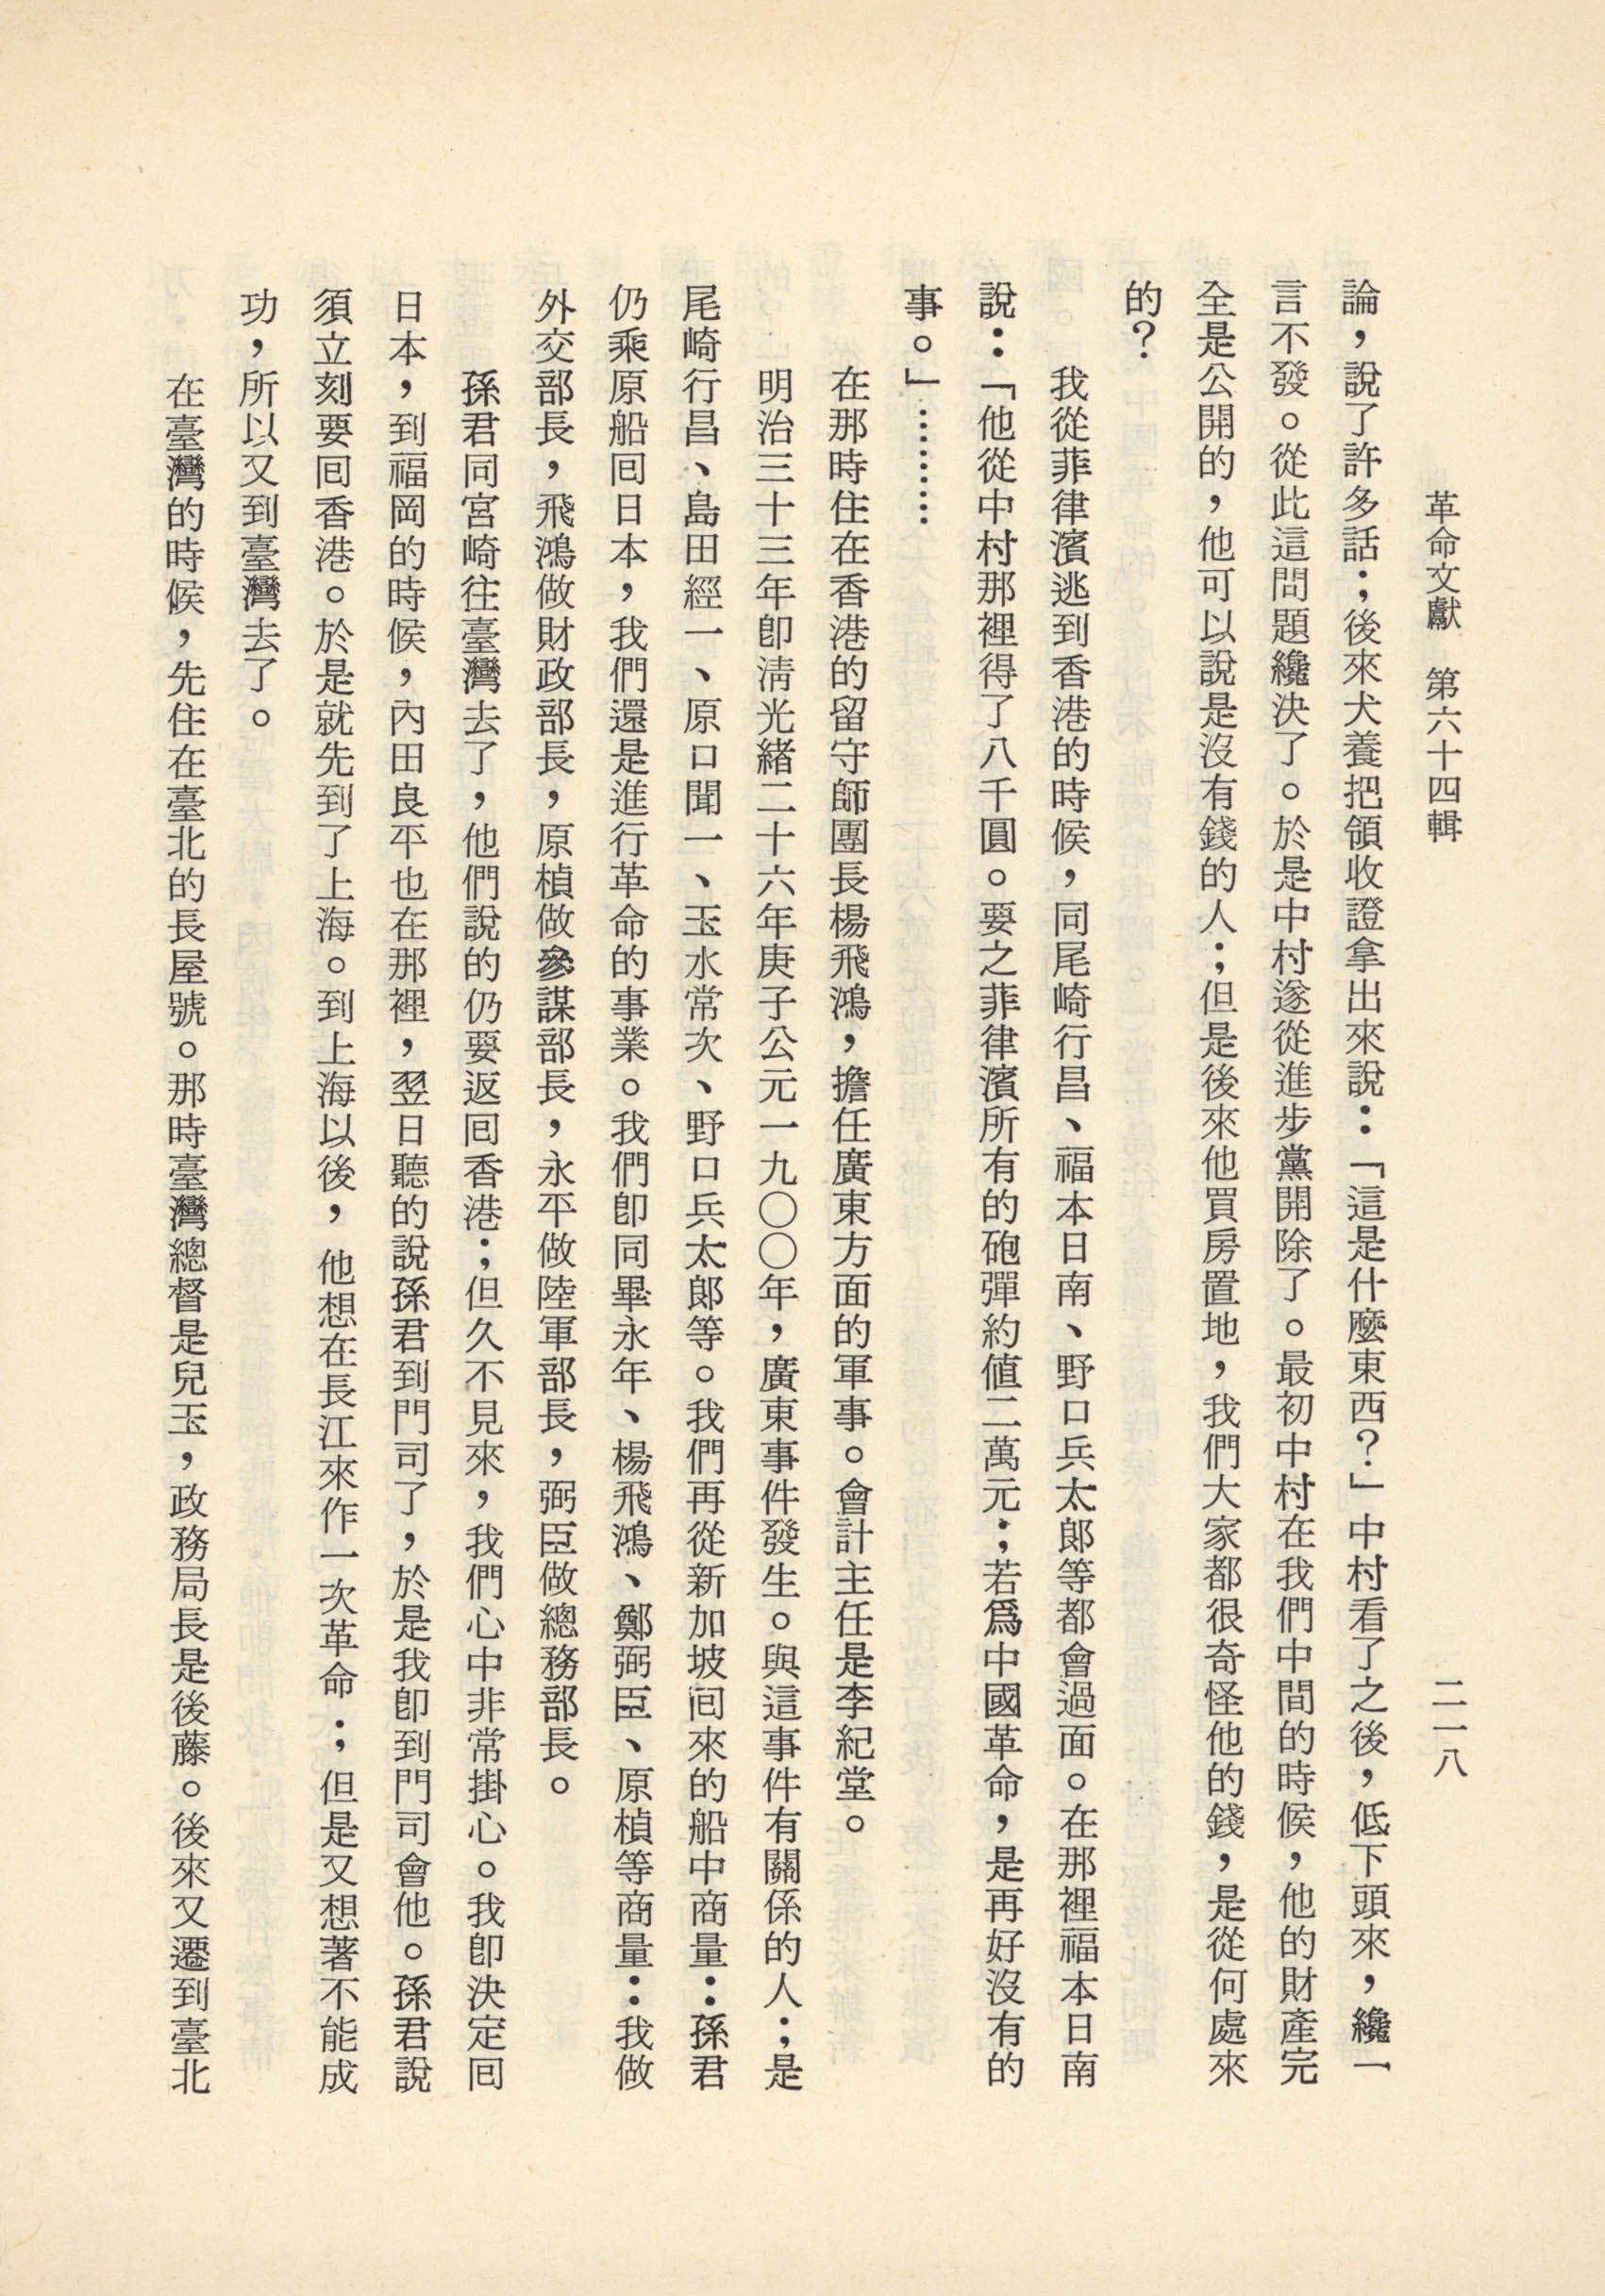 革命文獻　第六十四輯
二一八
論，說了許多話；後來犬養把領收證拿出來說：「這是什麼東西？」中村看了之後，低下頭來，纔一
言不發。從此這問題纔決了。於是中村遂從進步黨開除了。最初中村在我們中間的時候，他的財產完
全是公開的，他可以說是沒有錢的人；但是後來他買房置地，我們大家都很奇怪他的錢，是從何處來
的？
我從菲律濱逃到香港的時候，同尾崎行昌、福本日南、野口兵太郎等都會過面。在那裡福本日南
說：「他從中村那裡得了八千圓。要之菲律濱所有的砲彈約値二萬元；若爲中國革命，是再好沒有的
事。」………
在那時住在香港的留守師團長楊飛鴻，擔任廣東方面的軍事。會計主任是李紀堂。
明治三十三年卽淸光緒二十六年庚子公元一九〇〇年，廣東事件發生。與這事件有關係的人；是
尾崎行昌、島田經一、原口聞一、玉水常次、野口兵太郎等。我們再從新加坡囘來的船中商量：孫君
仍乘原船囘日本，我們還是進行革命的事業。我們卽同畢永年、楊飛鴻、鄭弼臣、原楨等商量：我做
外交部長，飛鴻做財政部長，原楨做參謀部長，永平做陸軍部長，弼臣做總務部長。
孫君同宮崎往臺灣去了，他們說的仍要返囘香港；但久不見來，我們心中非常掛心。我卽決定囘
日本，到福岡的時候，內田良平也在那裡，翌日聽的說孫君到門司了，於是我卽到門司會他。孫君說
須立刻要囘香港。於是就先到了上海。到上海以後，他想在長江來作一次革命；但是又想著不能成
功，所以又到臺灣去了。
在臺灣的時候，先住在臺北的長屋號。那時臺灣總督是兒玉，政務局長是後藤。後來又遷到臺北